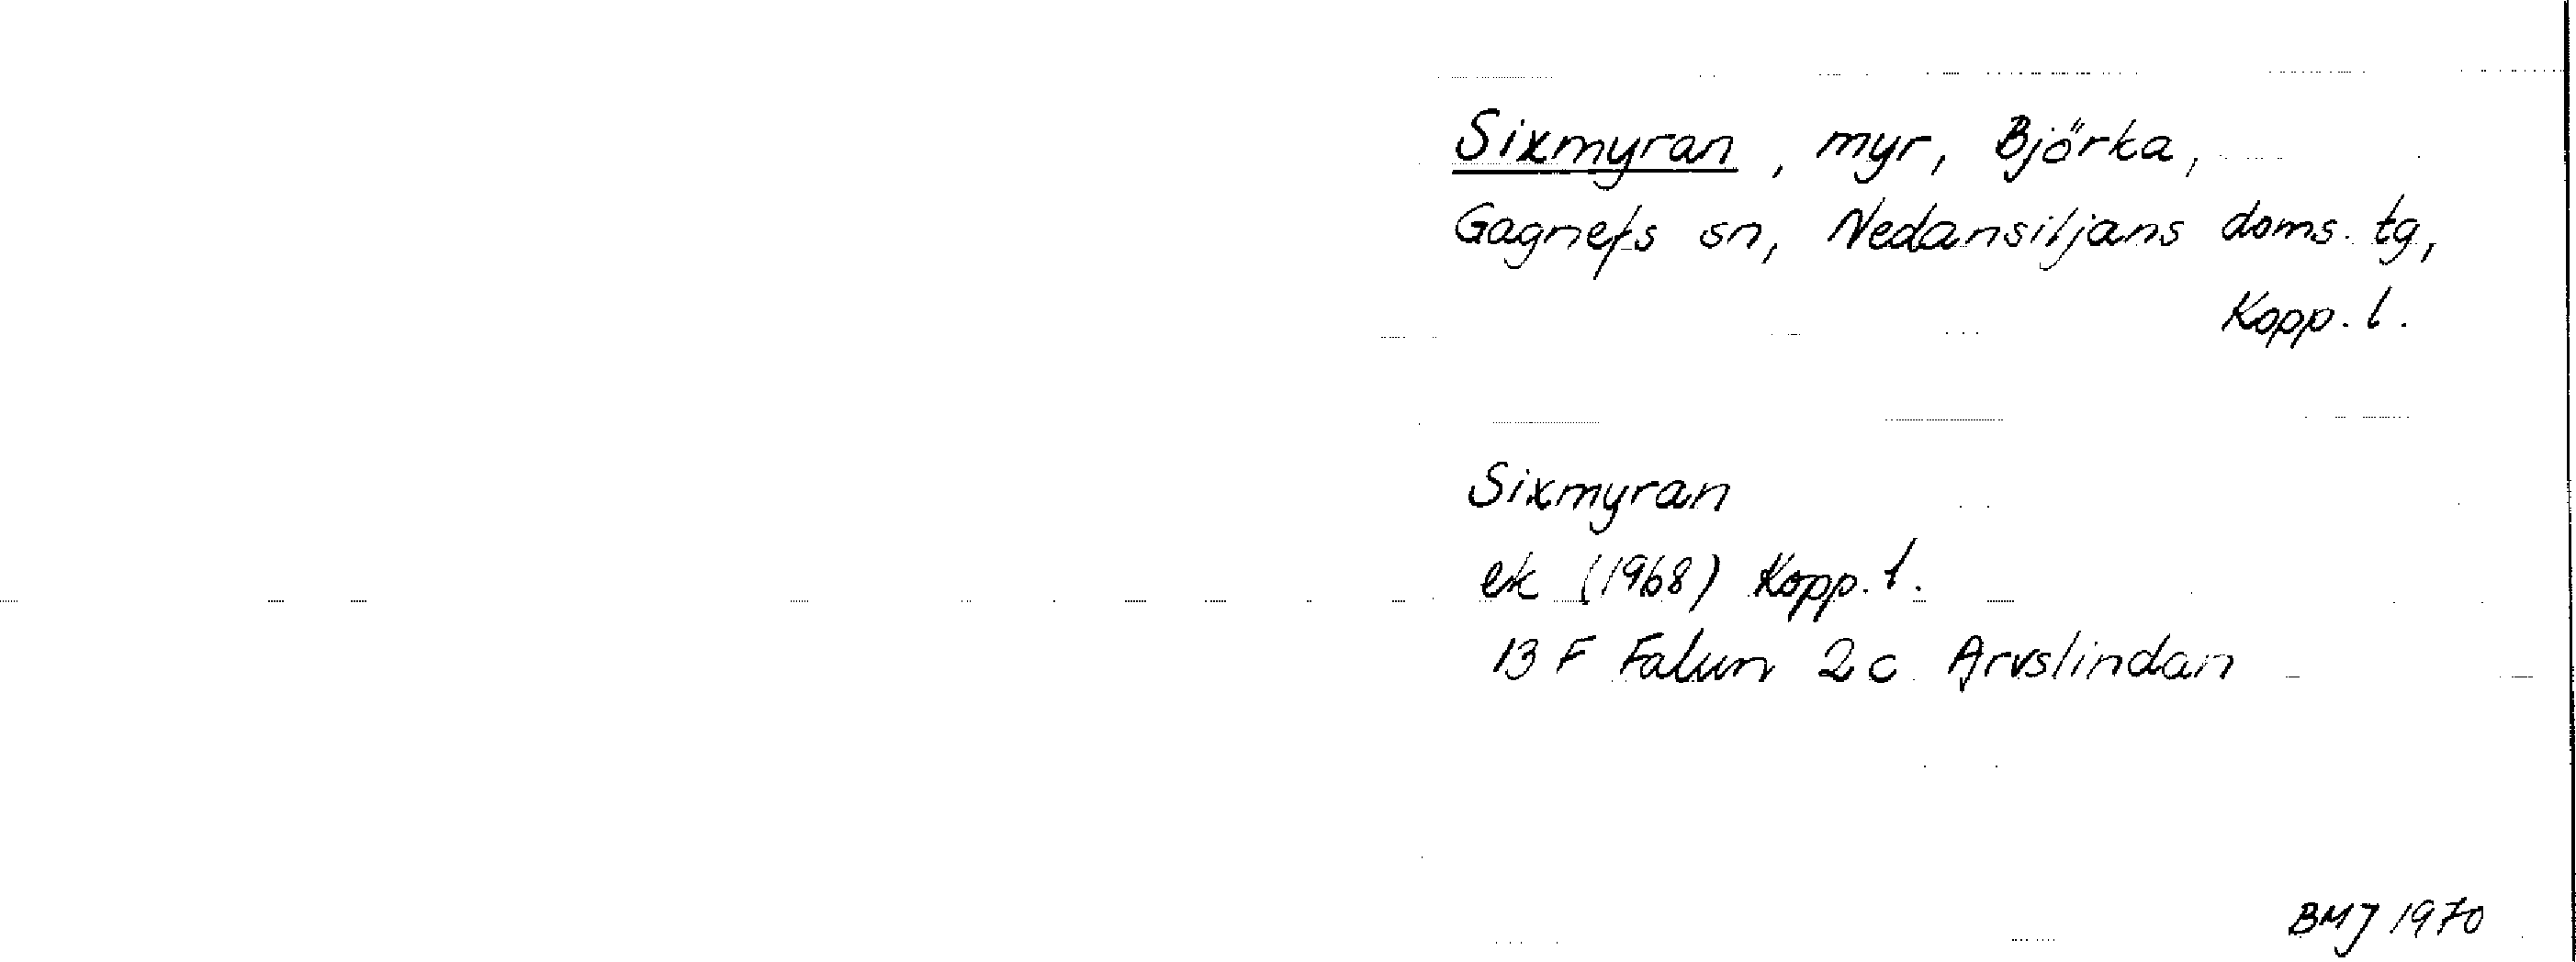 Sixmyran, myr, Björka,
Gagnefs sn, Nedansiljans doms. tg,
Kopp. l.
Sixmyran
ek (1968) Kopp. l.
13 F Falun 2 c Arvslindan
BMJ 1970